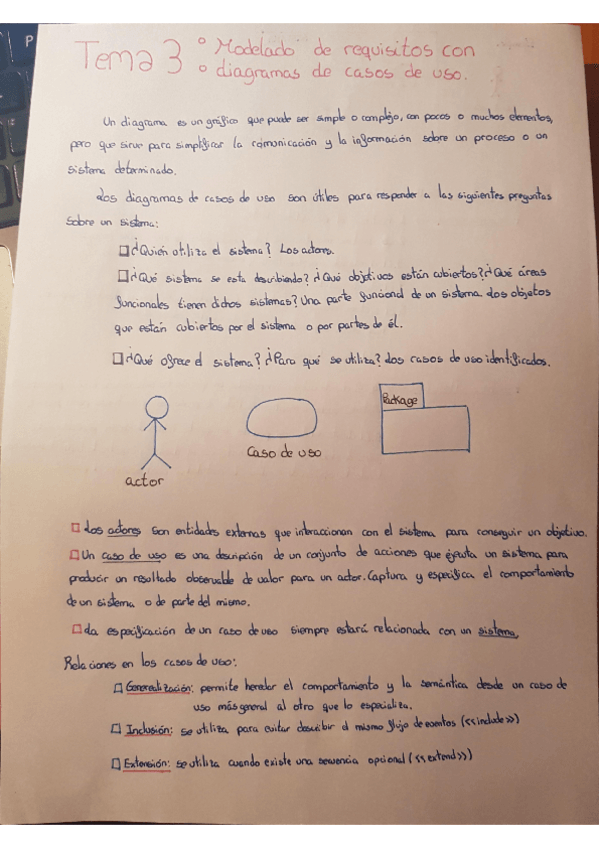 P
Tema 3 º Modelado de requisitos con
o diagramas de casos de uso.
Un diagrama es un gráfico que puede ser simple o complejo, con pocos o muchos elementos,
pero que sirve para simplificar la comunicación y la información sobre un proceso o un
sistema determinado.
Los diagramas de casos de uso son útiles para responder a las siguientes preguntas
sobre un sistema:
¿Quién utiliza el sistema? Los actores.
¿Qué sistema se esta describiendo? ¿Qué objetivos están cubiertos? ¿Qué áreas
funcionales tienen dichos sistemas? Una parte funcional de un sistema. Los objetos
que están cubiertos por el sistema o por partes de él.
¿Qué ofrece el sistema? ¿Para qué se utiliza? Los casos de uso identificados.
Package
Caso de uso
actor
Los actores son entidades externas que interaccionan con el sistema para conseguir un objetivo.
Un caso de uso es una descripción de un conjunto de acciones que ejecuta un sistema para
producir un resultado observable de valor para un actor. Captura y especifica el comportamiento
de un sistema o de parte del mismo.
La especificación de un caso de uso siempre estará relacionada con un sistema.
Relaciones en los casos de uso:
Generealización: permite heredar el comportamiento y la semántica desde un caso de
uso más general al otro que lo especializa.
Inclusión: se utiliza para evitar describir el mismo flujo de eventos (<<include>>)
Extensión: se utiliza cuando existe una secuencia opcional (<<extend>>)